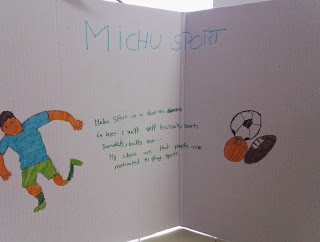 MICHU SPORT
Michu Sport is a shop
I will sell tracksuits, boots
sandals, balls ...
My ideas are that people are
motivated to play sports